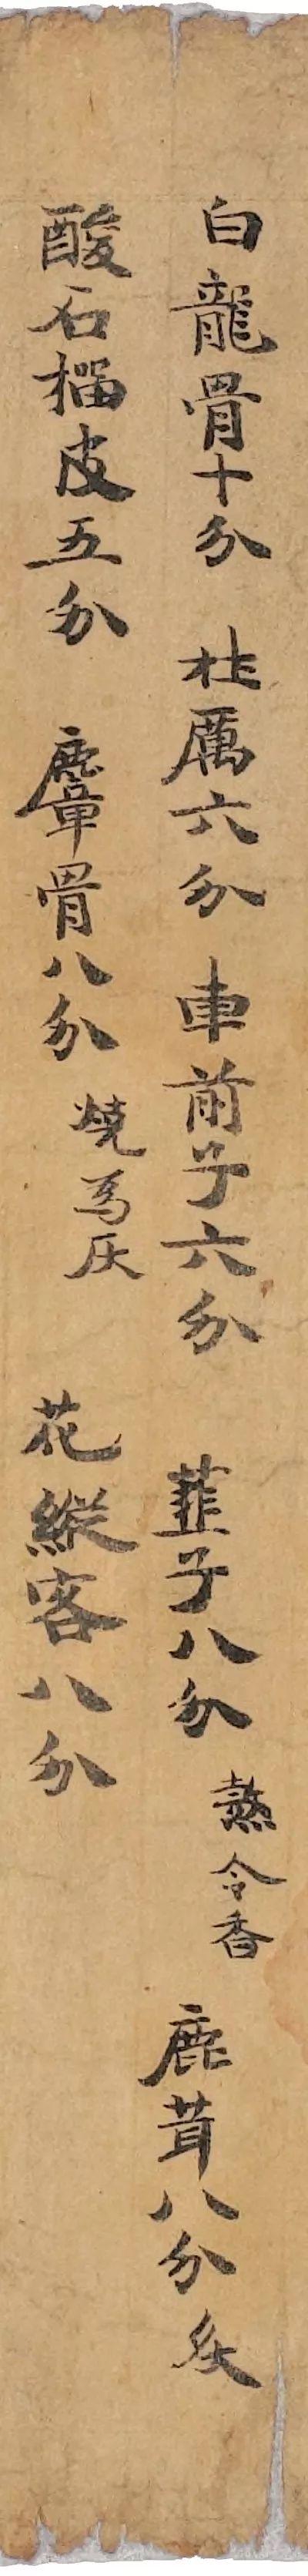 白龍骨十分 牡厲六分 車前子六分 韮子八分 熬令香 鹿茸八分 炙
酸石榴皮五分 麞骨八分 燒爲灰 花縱容八分